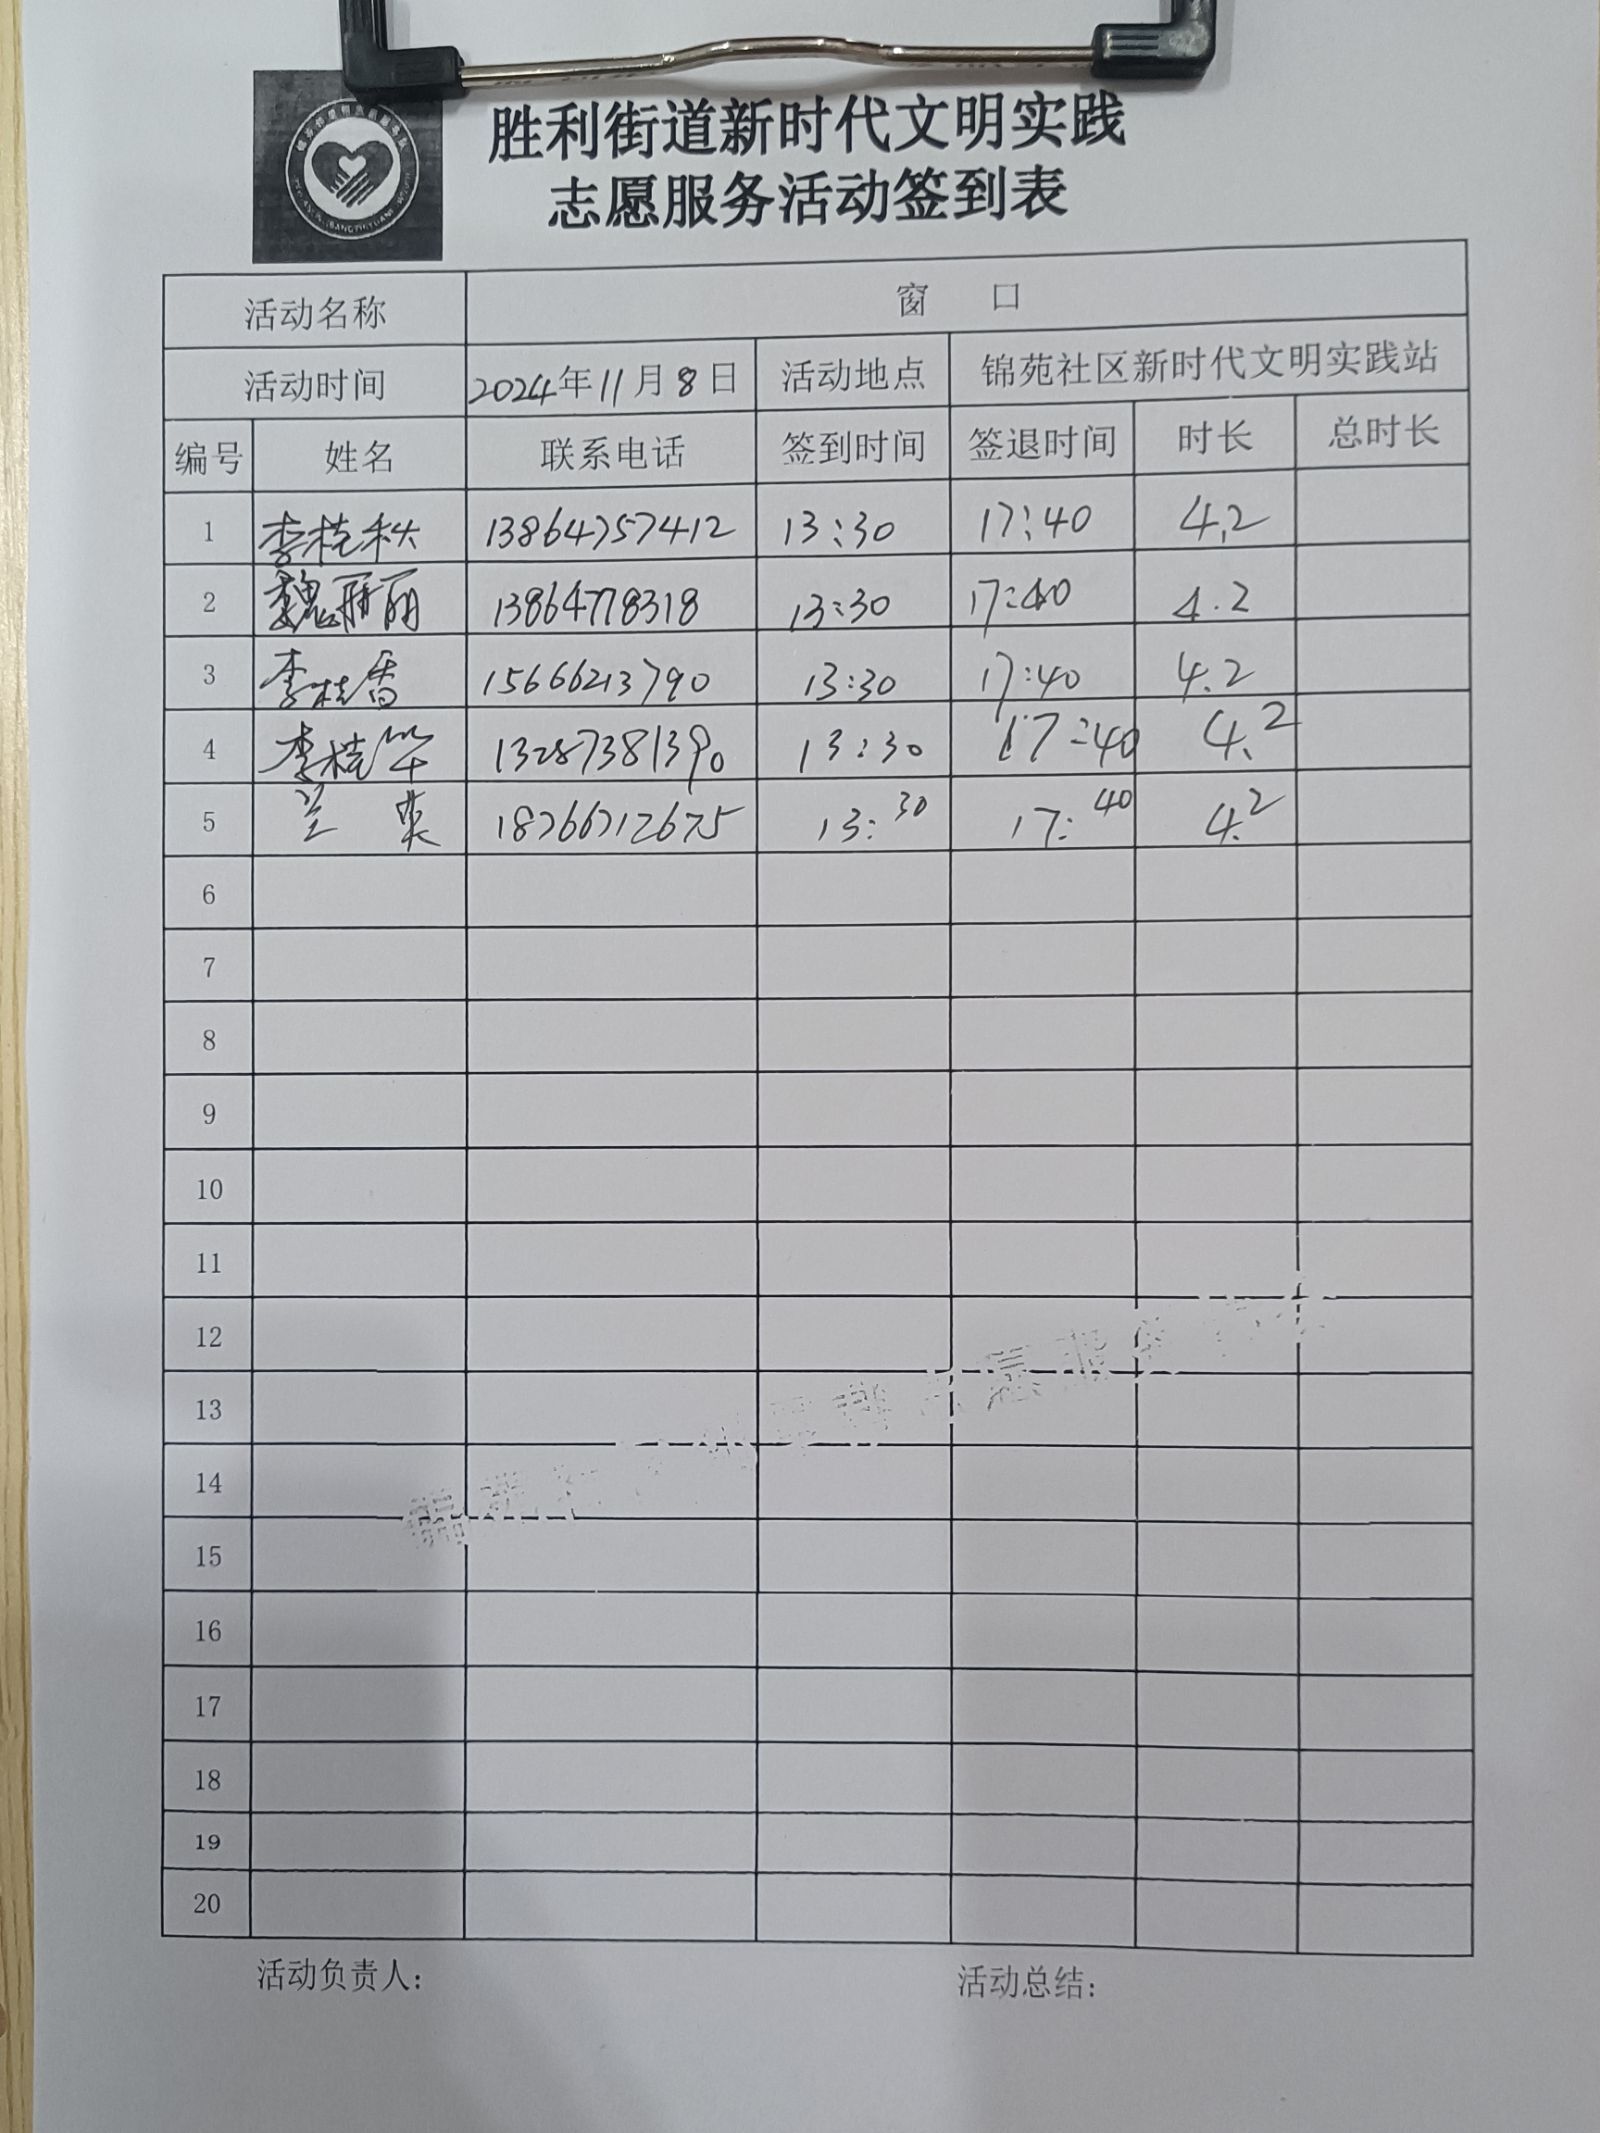 胜利街道新时代文明实践
志愿服务活动签到表
活动名称 窗 口
活动时间 2024年11月8日 活动地点 锦苑社区新时代文明实践站
编号 姓名 联系电话 签到时间 签退时间 时长 总时长
1 李桂秋 13864757412 13:30 17:40 4.2
2 魏丽丽 13864778318 13:30 17:40 4.2
3 李桂香 15666213790 13:30 17:40 4.2
4 李桂华 13287381390 13:30 17:40 4.2
5 兰爽 18766712675 13:30 17:40 4.2
6
7
8
9
10
11
12
13
14
15
16
17
18
19
20
活动负责人: 活动总结: